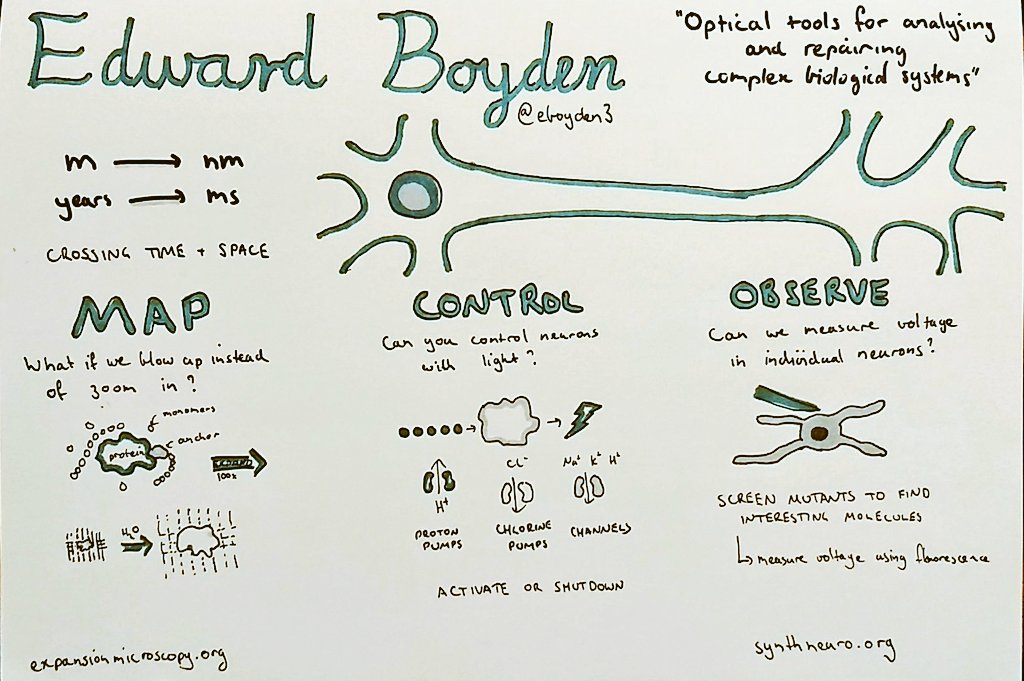 Edward Boyden
@eboyden3
"Optical tools for analysing
and repairing
complex biological systems"
m → nm
years → ms
CROSSING TIME + SPACE
MAP
What if we blow up instead
of zoom in?
monomers
anchor
protein
100x
H₂O
expansionmicroscopy.org
CONTROL
Can you control neurons
with light?
H⁺
PROTON
PUMPS
Cl⁻
CHLORINE
PUMPS
Na⁺ K⁺ H⁺
CHANNELS
ACTIVATE OR SHUTDOWN
OBSERVE
Can we measure voltage
in individual neurons?
SCREEN MUTANTS TO FIND
INTERESTING MOLECULES
↳ measure voltage using fluorescence
synthneuro.org